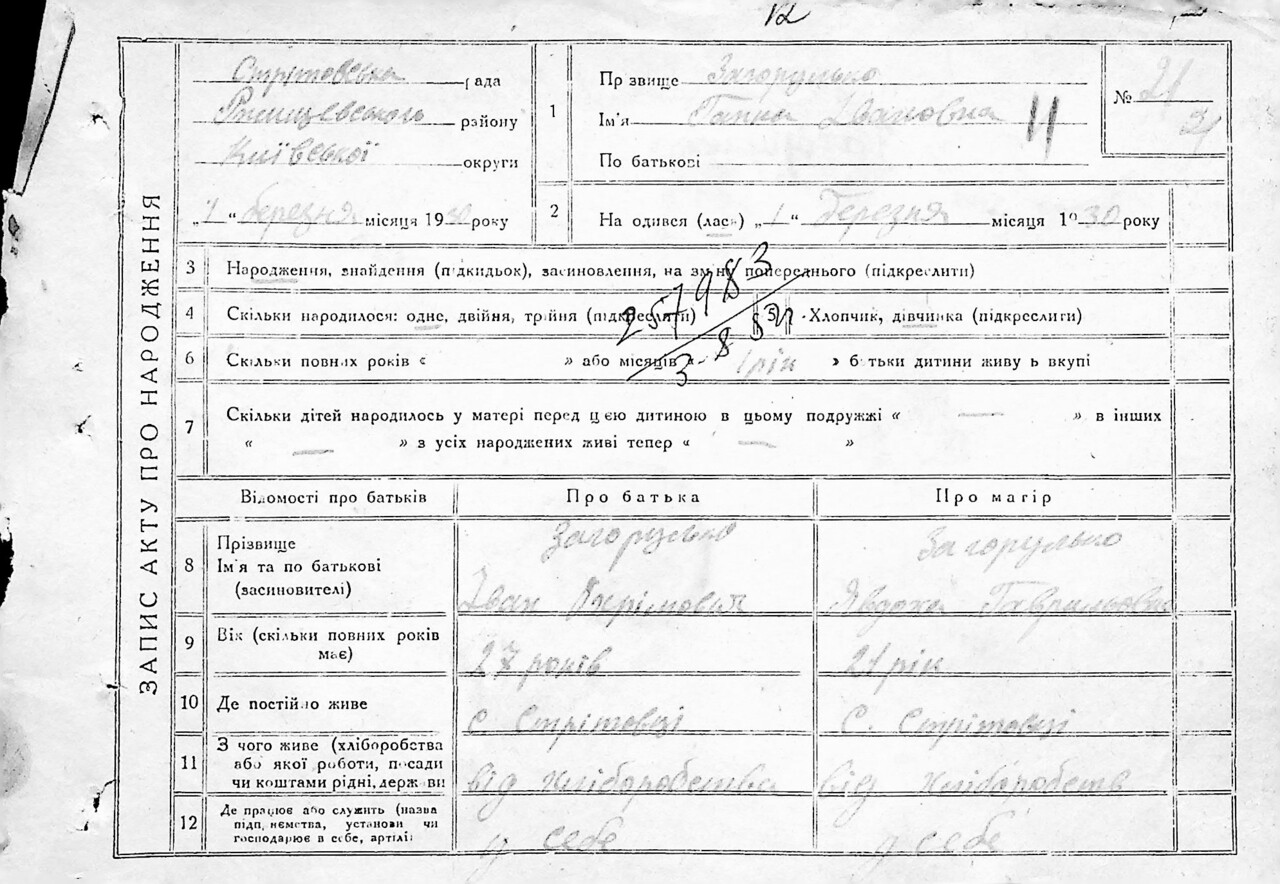 12
Стритовська рада
Ржищевського району
Київської округи
„1“ березня місяця 1930 року
1
Пр звище Загорулько
Ім'я Ганна Івановна
По батькові
11
№ 21
31
2
На одився (лась) „1“ березня місяця 1930 року
ЗАПИС АКТУ ПРО НАРОДЖЕННЯ
3 Народження, знайдення (підкидьок), засиновлення, на зміну попереднього (підкреслити)
257983
4 Скільки народилося: одне, двійня, трійня (підкреслити)
5 Хлопчик, дівчинка (підкреслити)
3-8
6 Скільки повних років « » або місяців « 1 рік » б тьки дитини живу ь вкупі
7 Скільки дітей народилось у матері перед цією дитиною в цьому подружжі « — » в інших
« — » з усіх народжених живі тепер « — »
Відомості про батьків
Про батька
Про матір
8
Прізвище
Ім'я та по батькові
(засиновителі)
Загорулько
Іван
Загорулько
Явдоха Гаврильовна
9
Вік (скільки повних років
має)
27 років
21 рік
10 Де постійно живе
с. Стрітовці
с. Стрітовці
11
З чого живе (хліборобства
або якої роботи, посади
чи коштами рідні, держави
від хліборобства
від хліборобств
12
Де працює або служить (назва
підп, немства, установи чи
господарює в себе, артілі
у себе
у себе